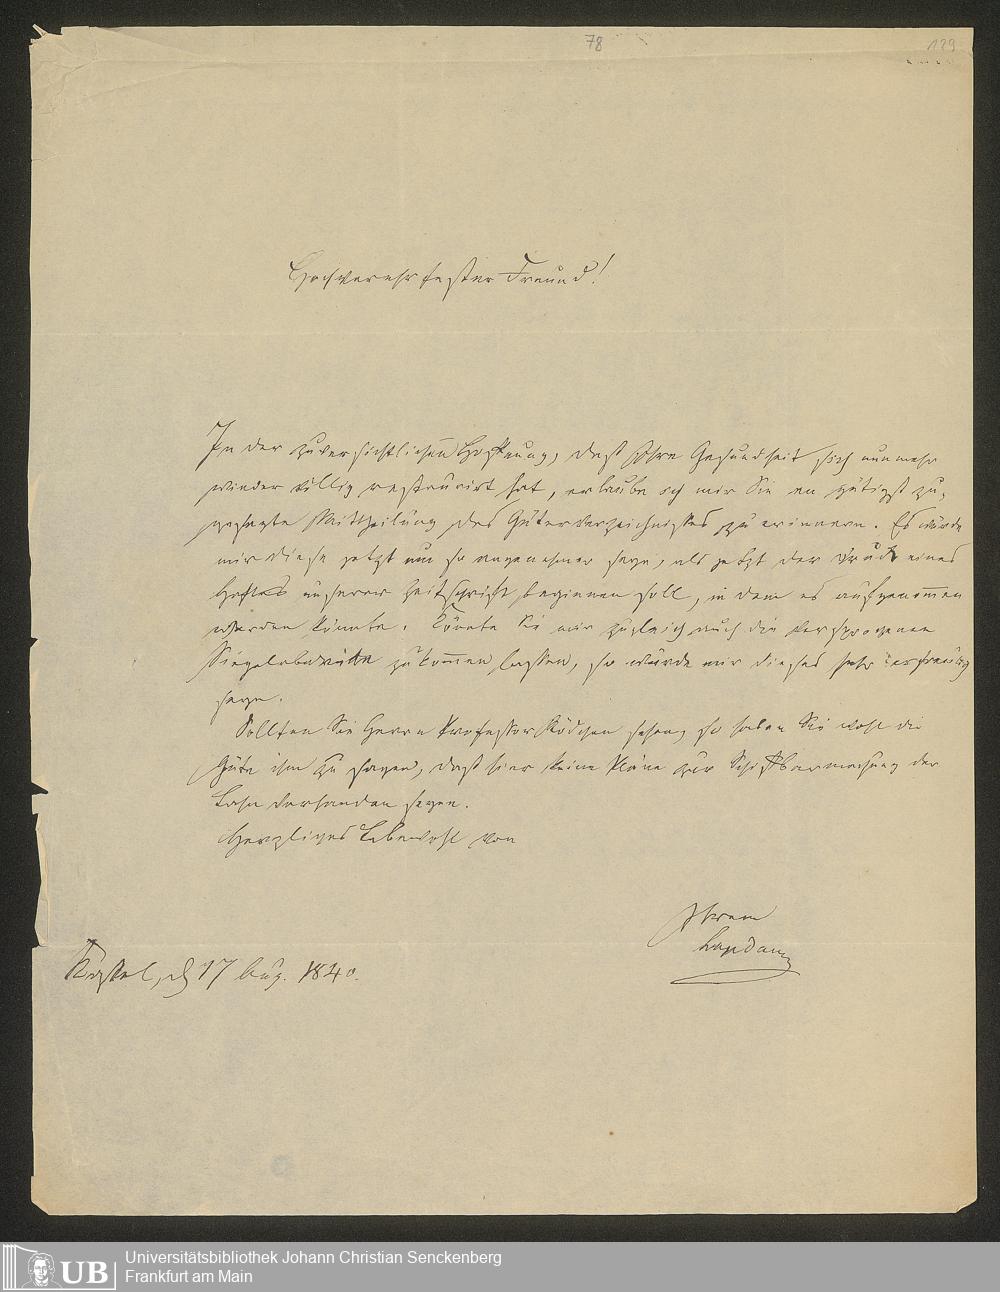 78
129
Hochverehrtester Freund!
In der zuversichtlichen Hoffnung, daß Ihre Gesundheit sich nunmehr
wieder völlig restaurirt hat, erlaube ich mir Sie an gütigst zu-
gesagte Mittheilung des Güterverzeichnisses zu erinnern. Es würde
mir diese jetzt um so angenehmer seyn, als jetzt der Druck eines
Heftes unserer Zeitschrift beginnen soll, in dem es aufgenommen
werden könnte. Könnte Sie mir zugleich auch die versprochenen
zukommen lassen, so würde mir dieses sehr erfreulich
seyn.
Sollten Sie Herrn Professor sehen, so haben Sie wohl die
Güte ihm zu sagen, daß hier keine Pläne zur Schiffbarmachung der
Lahn vorhanden seyen.
Herzliches Lebewohl von
Ihrem
Landau
Kassel, d 17 Aug. 1840.
UB
Universitätsbibliothek Johann Christian Senckenberg
Frankfurt am Main